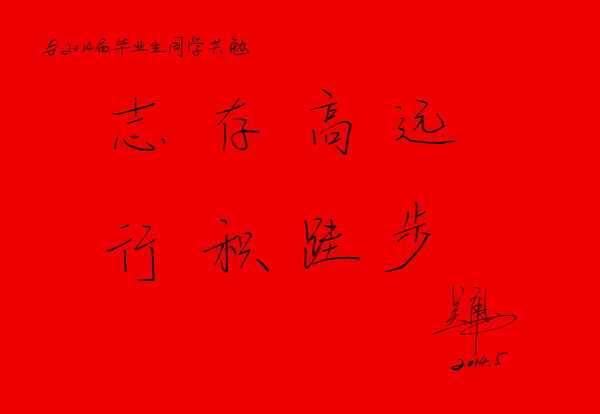 与2014届毕业生同学共勉
志存高远
行积跬步
2014.5